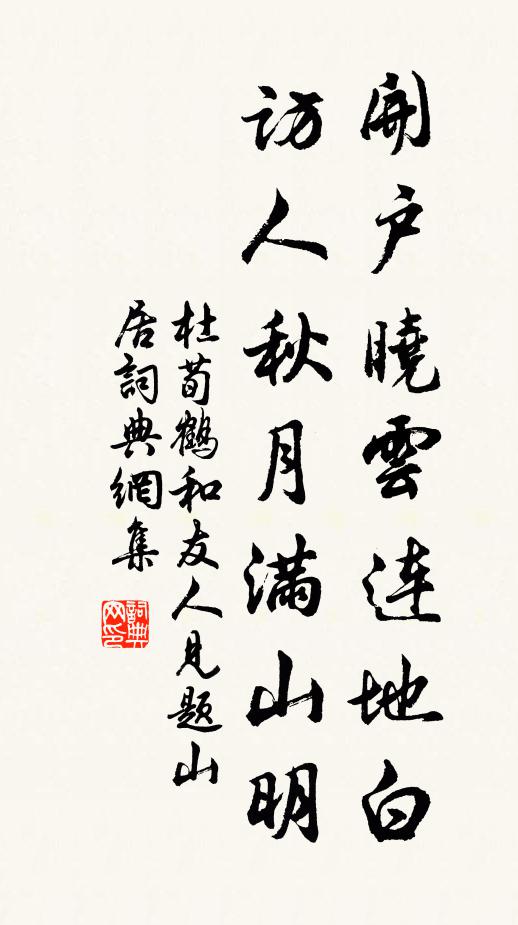 開户曉雲連地白
訪人秋月滿山明
杜荀鶴和友人見題山
居詞典網集
詞典網印